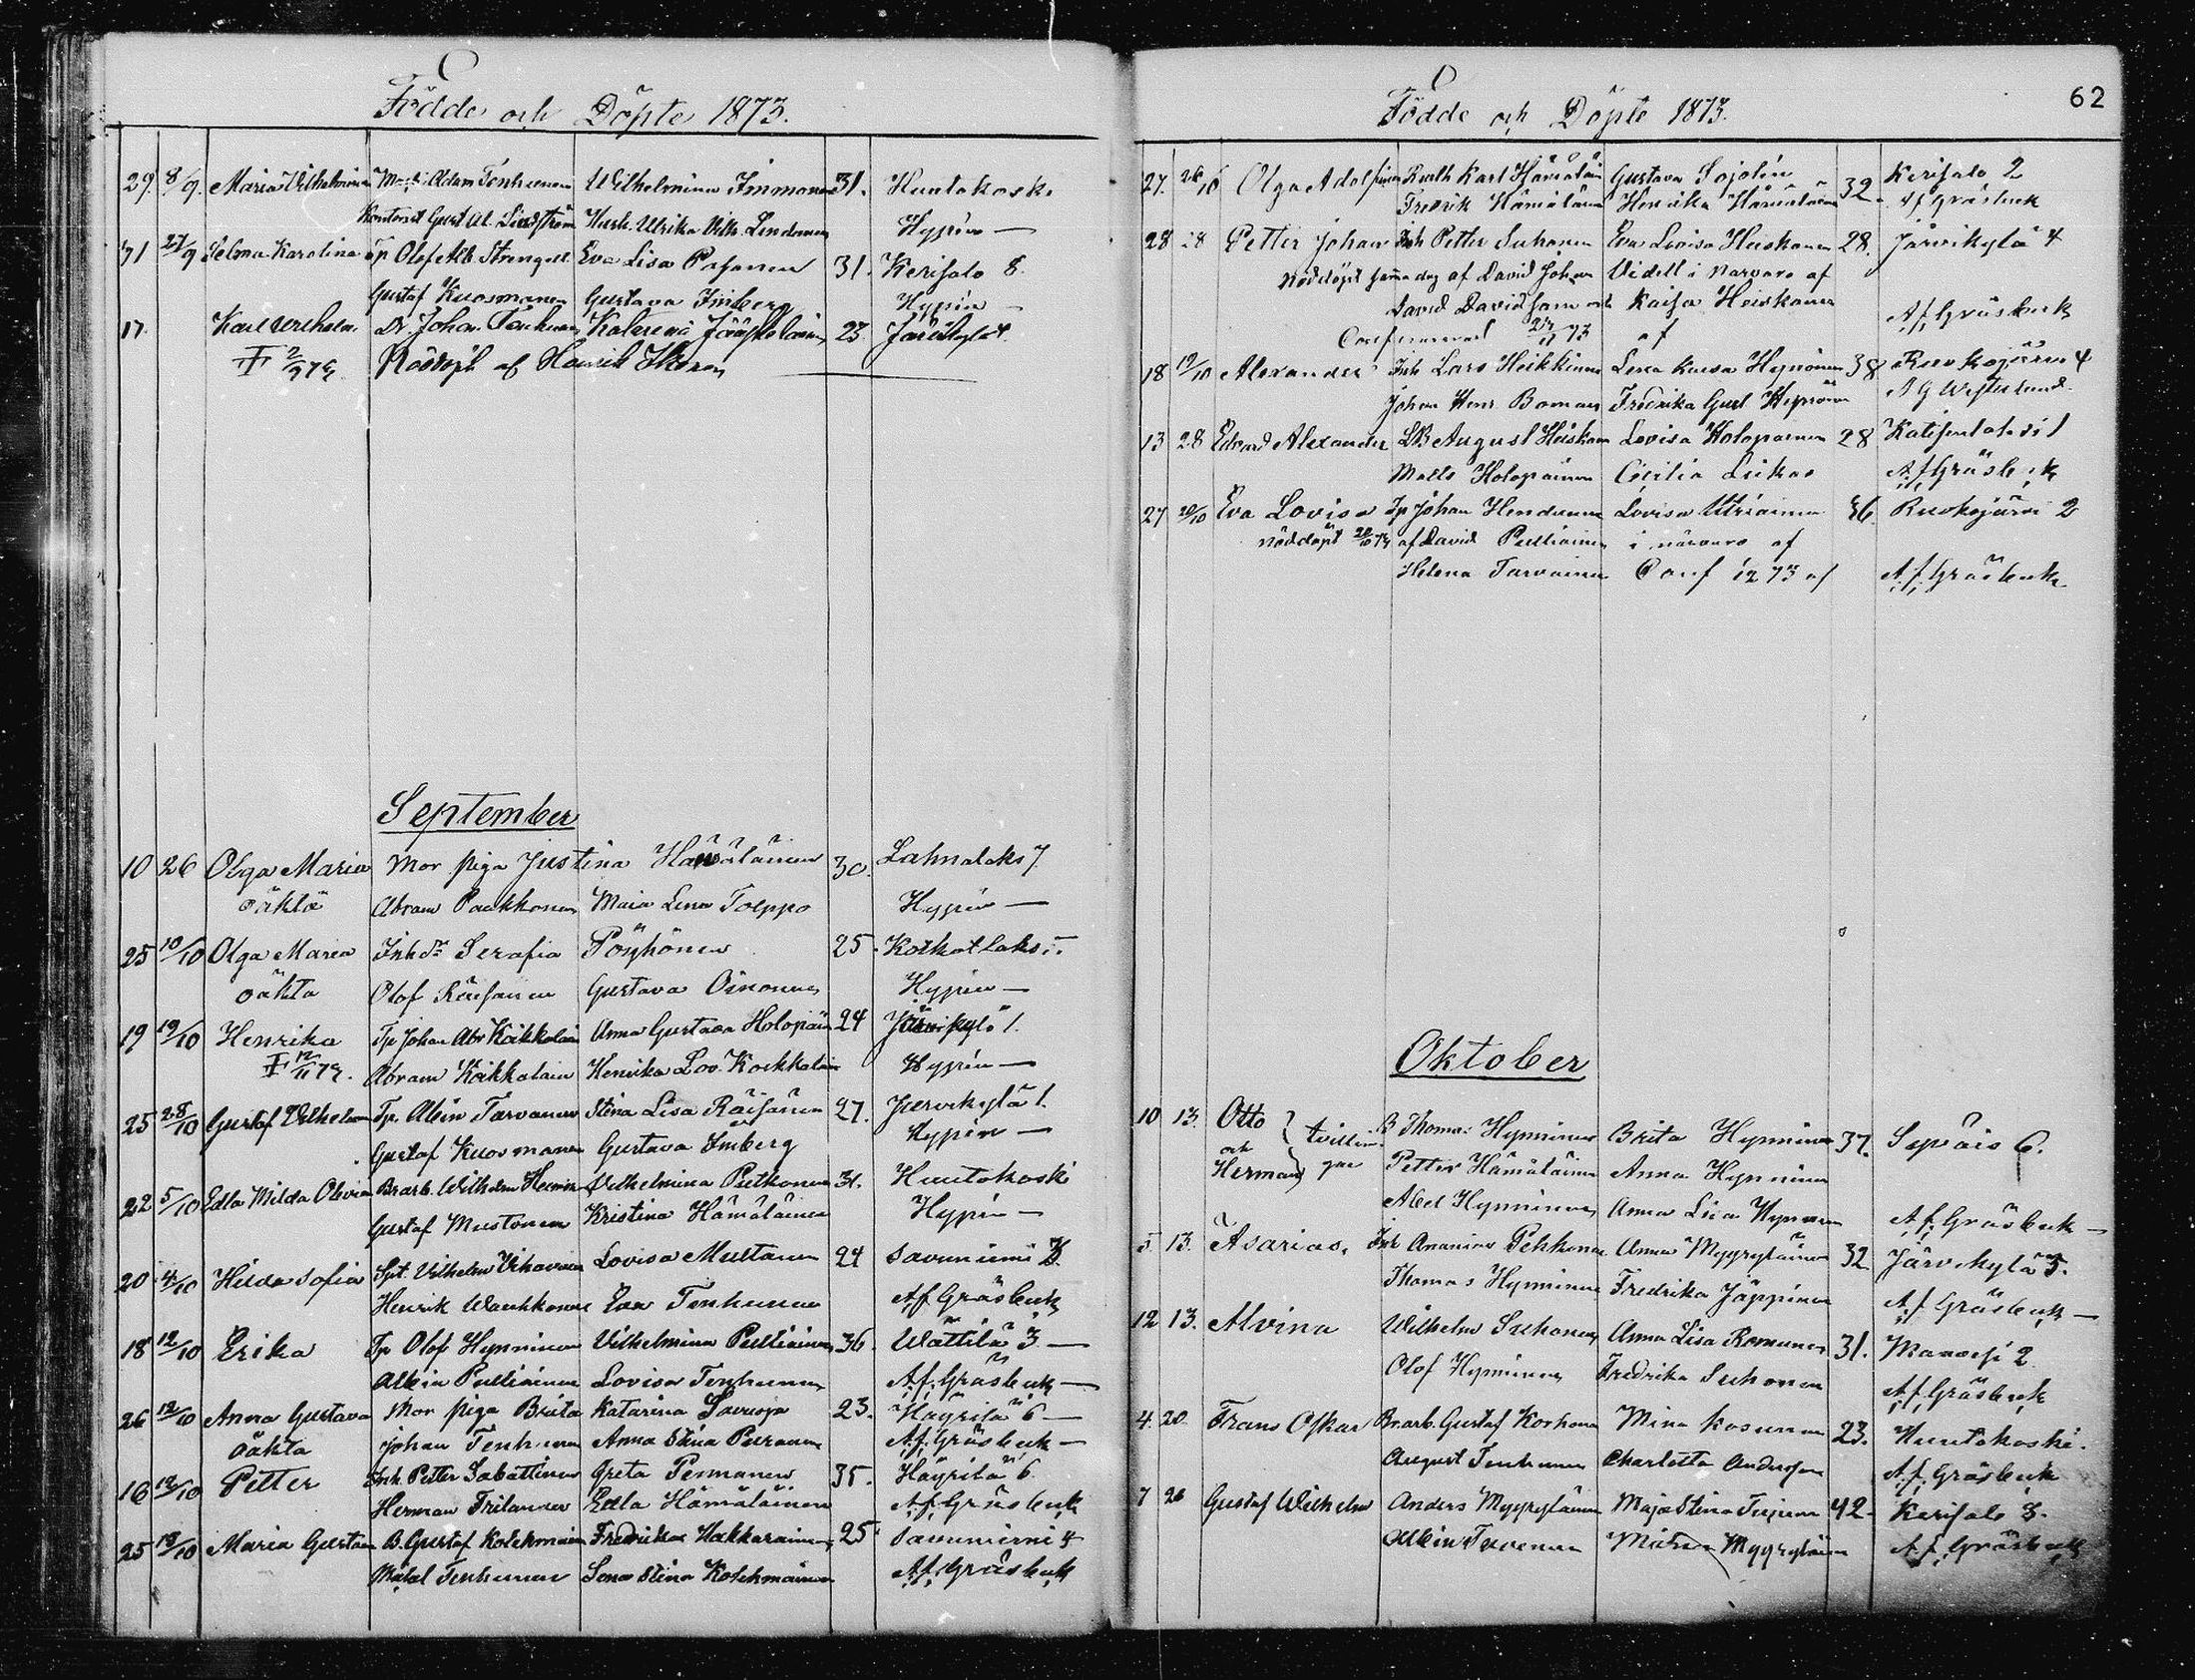 Födde och Döpte 1873.
29. 8/9. Maria Vilhelmina Adam Tenhunen Wilhelmina Immonen 31. Huutokoski
Gust Al. Lindström Hush. Ulrika Vilh. Lindroos Hypén —
31 27/9 Selma Karolina Tp Olof Alb. Strengell Eva Lisa Pasanen 31. Kerisalo 8.
Gustaf Kuosmanen Gustava Imberg Hypén —
17. Karl Vilhelm. Dr. Johan Tenhunen Katarina Jääskeläinen 23 Järvikylä 4.
Nöddöpt af Henrik Ikonen
September
10 26 Olga Maria Mor piga Justina Hämäläinen 30. Lahnalaks 7
oäkta Abram Paukkonen Maia Lena Toeppo Hypén —
25 10/10 Olga Maria Inh dr Serafia Pöyhönen 25. Kotkatlaks
oäkta Olof Räisänen Gustava Oinonen Hypén —
19 19/10 Henrika Tp Johan Abr Koikkalain Anna Gustava Holopain 24 Järvikylä 1.
Abram Koikkalain Henrika Lov. Koikkalain Hypén —
25 28/10 Gustaf Vilhelm Tp. Albin Tarvanen Stina Lisa Räisänen 27. Jervikylä 1.
Gustaf Kuosmanen Gustava Imberg Hypén —
22 5/10 Edla Milda Olivia Br.arb. Wilhelm Vilhelmina Putkonen 31. Huutokoski
Gustaf Mustonen Kristina Hämäläinen Hypén —
20 4/10 Hilda Sofia Spt. Vilhelm Vihavainen Lovisa Multanen 24 Savuniemi
Henrik Wauhkonen Eva Tenhunen A.f. Gräsbeck
18 12/10 Erika Tp Olof Hynninen Vilhelmina Pulliainen 36. Wättilä 3 —
Albin Pulliainen Lovisa Tenhunen A.f. Gräsbeck —
26 12/10 Anna Gustava Mor piga Brita Katarina Savusja 23. Häyrilä 6 —
oäkta Johan Tenhunen Anna Stina Puranen A.f. Gräsbeck —
16 12/10 Petter Inh. Petter Sabattinen Greta Permanen 35. Häyrilä 6.
Herman Frilander Edla Hämäläinen A.f. Gräsbeck
25 12/10 Maria Gustava B. Gustaf Kolehmainen Fredrika Hakkarainen 25 Savuniemi 4
Mikal Tenhunen Lena Stina Kolehmainen A.f. Gräsbeck
Födde och Döpte 1873.
62
27. 26/10 Olga Adolfina Karl Hämäläin Gustava Sojolén 32. Kerisalo 2
Fredrik Hämäläinen Henrika Hämäläinen A.f. Gräsbeck
28 28 Petter Johan Inh Petter Suhonen Eva Lovisa Heiskanen 28. Järvikylä 4
Nöddöpt samma dag af David Johan Videll i närvaro af
David Davidsson och Kaisa Heiskanen A.f. Gräsbeck
af
18 19/10 Alexander Inh Lars Heikkinen Lena Kaisa Hynönen 38 Ruokojärvi 4
Johan Henr. Boman Fredrika Gust Hynönen A G Westerlund
13 28 Edvard Alexander LB August Heiskan Lovisa Holopainen 28
Matts Holopainen Cecilia Leskas A.f. Gräsbeck
27 28/10 Eva Lovisa Tp Johan Hendunen Lovisa Utriainen 36. Ruokojärvi 2
Nöddöpt 28/10 73 af David Pulliainen i närvaro af
Helena Tarvainen Conf 73 af A.f. Gräsbeck
Oktober
10 13. Otto B Thomas Hynninen Brita Hynninen 37. Sepäis 6.
och tvillingar
Herman Petter Hämäläinen Anna Hynninen
Abel Hynninen Anna Lisa Hynninen A.f. Gräsbeck —
5 13. Asarias. Inh Ananias Pekkonen Anna Myyryläinen 32 Järvikylä 5.
Thomas Hynninen Fredrika Jäppinen A.f. Gräsbeck —
12 13. Alvina Wilhelm Suhonen Anna Lisa Romunen 31. 2
Olof Hynninen Fredrika Suhonen A.f. Gräsbeck
4. 20. Frans Oskar Br.arb. Gustaf Korhonen Mina Kosunen 23. Huutokoski.
August Tenhunen Charlotta Andersson A.f. Gräsbeck
7 26 Gustaf Wilhelm Anders Myyryläinen Maja Stina 42. Kerisalo 8.
Albin Tarvonen Myyryläinen A.f. Gräsbeck